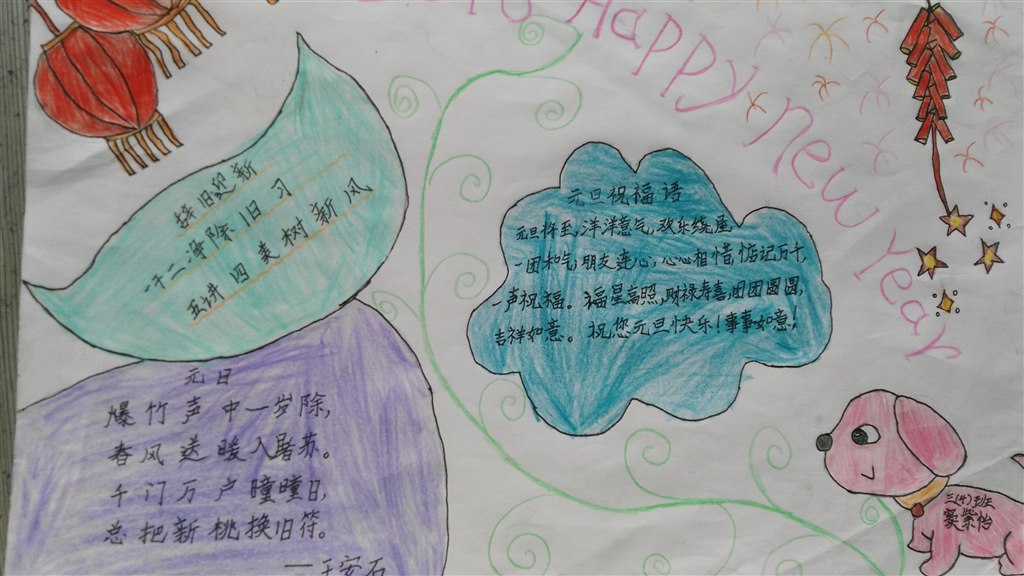 Happy New Year
辞旧迎新
一干二净除旧习
五讲四美树新风
元旦祝福语
元旦将至,洋洋意气,欢乐绕屋,
一团和气,朋友连心,心心相惜,惦记万千,
一声祝福。福星高照,财禄寿喜,团团圆圆,
吉祥如意。祝您元旦快乐!事事如意!
元日
爆竹声中一岁除,
春风送暖入屠苏。
千门万户曈曈日,
总把新桃换旧符。
——王安石
三(4)班
紫怡